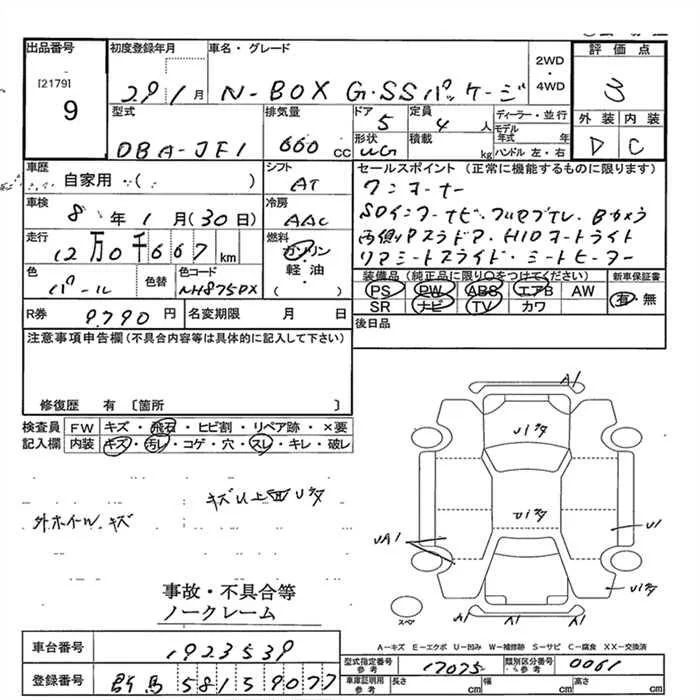 出品番号
[2179]
9
初度登録年月
29 1月
車名・グレード
N-BOX G・SSパッケージ
2WD
・
4WD
評価点
3
外装 内装
D C
型式
DBA-JF1
排気量
660 CC
ドア
5
定員
4 人
形状
積載 kg
ディーラー・並行
モデル年式 年
ハンドル 左・右
車歴
自家用 ( )
シフト
AT
車検
8年 1月 (30日)
冷房
AAC
走行
12万0千667 km
燃料
ガソリン
軽・油
( )
色
パール
色替
色コード
NH875PX
セールスポイント (正常に機能するものに限ります)
ワンオーナー
SDインナーナビ・フルセグTV・Bカメラ
両側Pスラドア・HIDオートライト
リアシートスライド・シートヒーター
装備品 (純正品に限り○をつけてください)
PS PW ABS エアB AW
SR ナビ TV カワ
新車保証書
有・無
R券
9,790 円
名変期限 月 日
後日品
注意事項申告欄 (不具合内容等は具体的に記入して下さい)
修復歴 有 〔箇所 〕
検査員記入欄
FW キズ・飛石・ヒビ割・リペア跡・×要
内装 キズ・汚レ・コゲ・穴・スレ・キレ・破レ
外ホイール キズ
A1
U1
UA1
A1 A1
スペア
事故・不具合等
ノークレーム
A-キズ E-エクボ U-凹み W-補修跡 S-サビ C-腐食 XX-交換済
車台番号
1923539
登録番号
群馬 581 9077
型式指定番号 参考
17075
類別区分番号 参考
0061
車庫証明用 参考
長さ cm 幅 cm 高さ cm